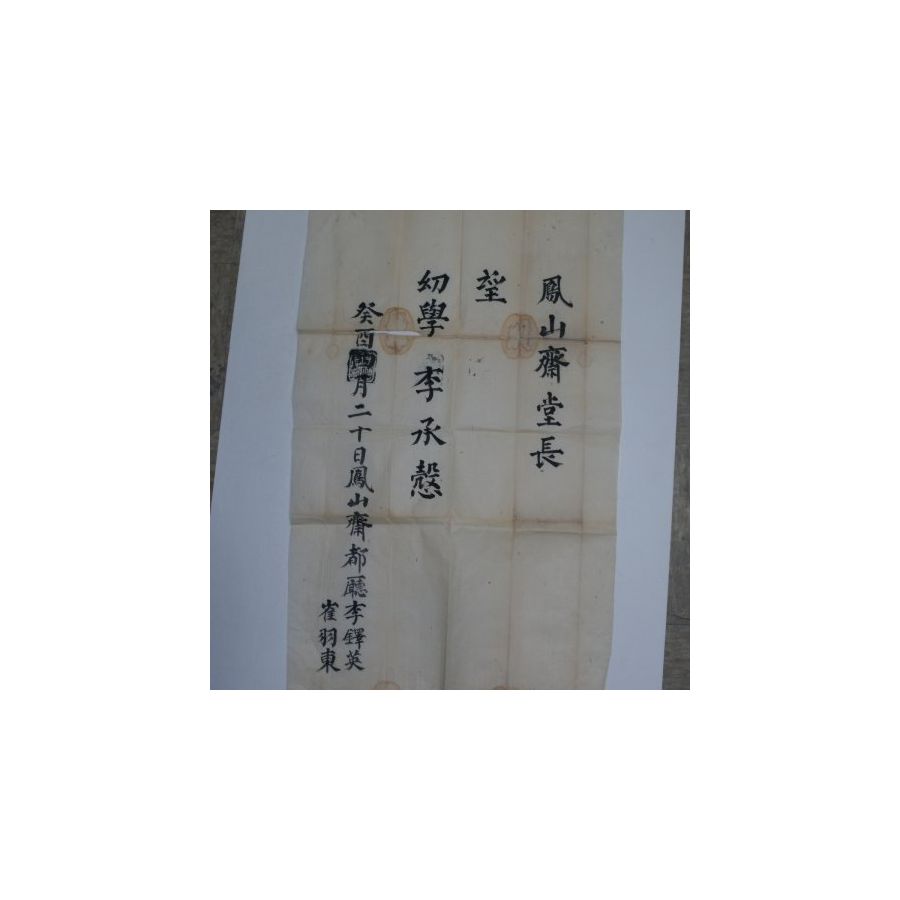 鳳山齋堂長
望
幼學 李承慤
癸酉 月二十日鳳山齋都廳李鐸英
崔羽東